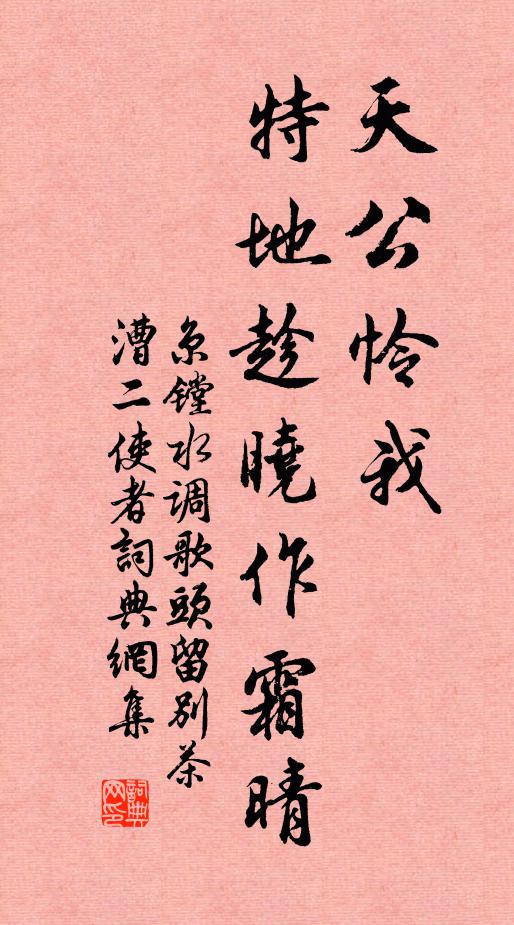 天公怜我
特地趁曉作霜晴
京镗水调歌頭留别茶
漕二使者詞典網集
詞典网印